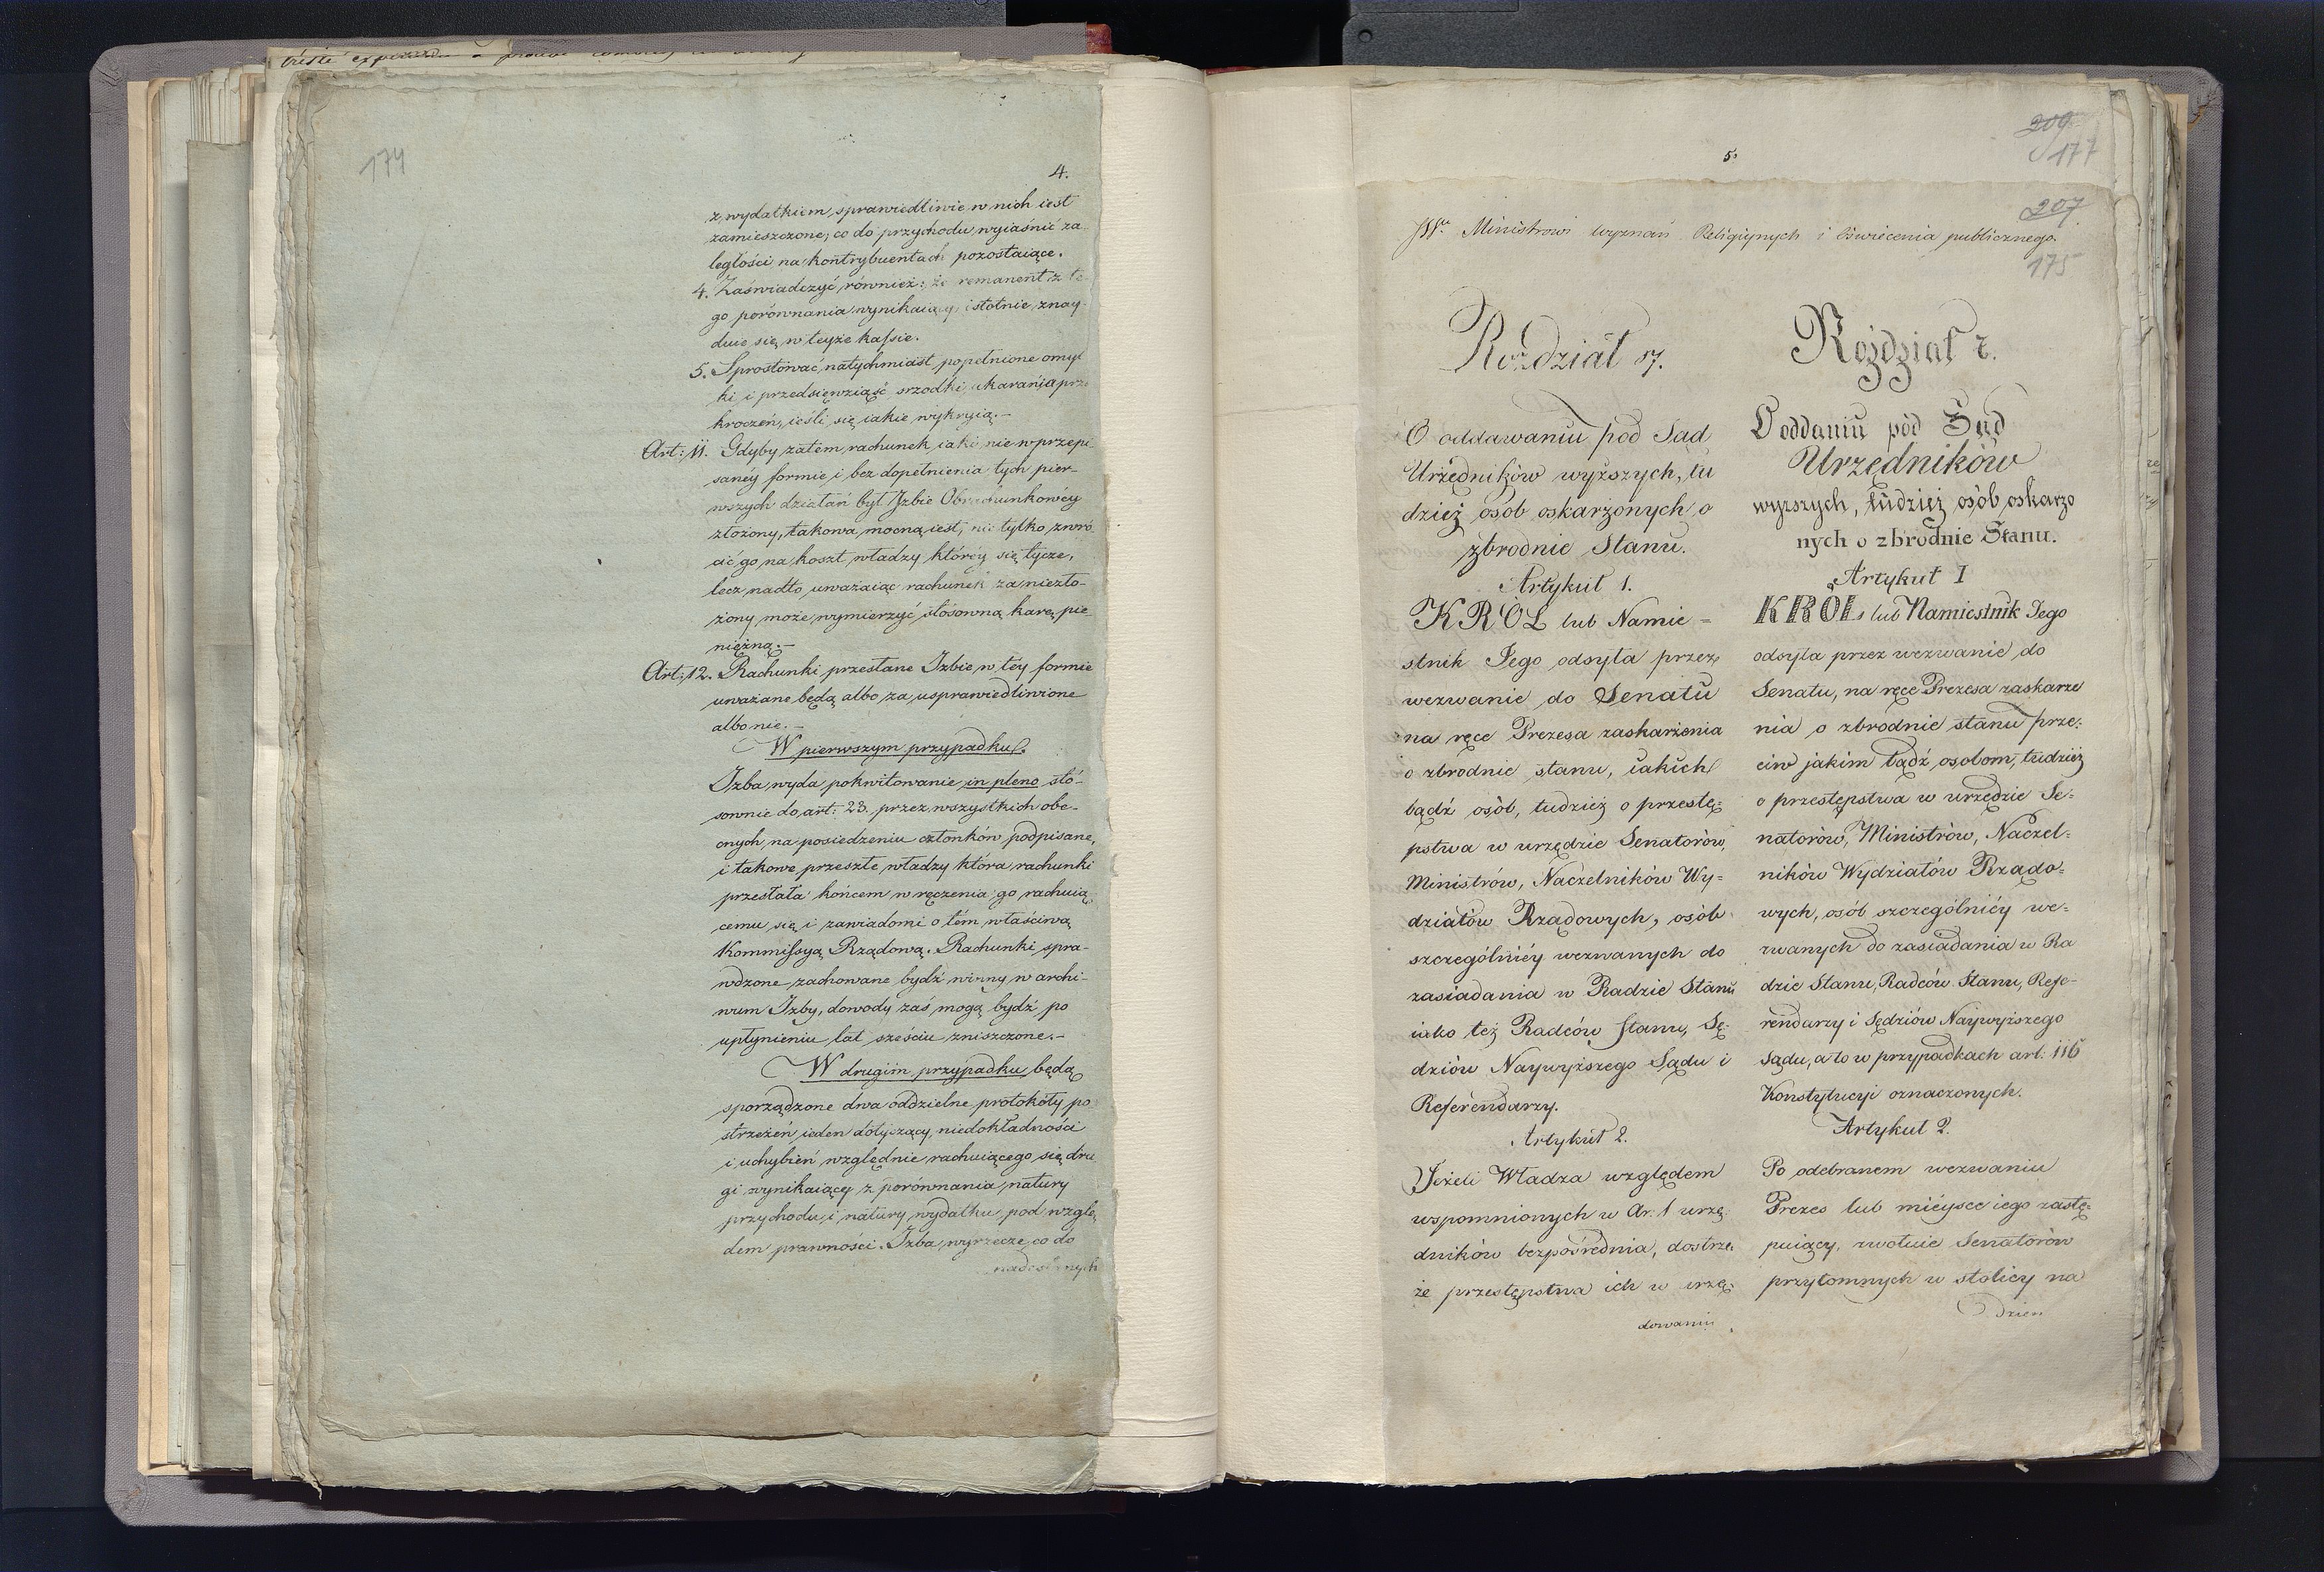 174
4.
z wydatkiem, sprawiedliwie w nich iest
zamieszczone; co do przychodu, wyiaśnić za
ległości na kontrybuentach pozostaiące.
4. Zaświadczyć, również: że remanent z te
go porównania wynikaiący, istotnie znay-
duie się w teyże kassie.
5. Sprostować natychmiast popełnione omył
ki i przedsięwziąść srzodki ukarania prze
kroczeń, ieśli się iakie wykryią.—
Art: 11. Gdyby zatem rachunek iaki nie w przepi
saney formie i bez dopełnienia tych pier-
wszych działań był Izbie Obrachunkowéy
złożony, takowa mocną iest, nie tylko zwró
cić go na koszt władzy któréy się tycze,
lecz nadto uważaiąc rachunek za niezło-
żony, może wymierzyć stósowną karę pie
niężną.—
Art: 12. Rachunki przesłane Izbie w téy formie
uważane będą albo za usprawiedliwione
albo nie.—
W pierwszym przypadku.
Izba wyda pokwitowanie in pleno stó-
sownie do art: 23. przez wszystkich obe-
cnych na posiedzeniu członków podpisane,
i takowe przeszle władzy która rachunki
przesłała końcem wręczenia go rachuią
cemu się i zawiadomi o tém właściwą
Kommissyą Rządową. Rachunki spra-
wdzone zachowane bydź winny w archi-
wum Izby, dowody zaś mogą bydź po
upłynieniu lat sześciu zniszczone.—
W drugim przypadku będą
sporządzone dwa oddzielne protokóły po
strzeżeń ieden dotyczący niedokładności
i uchybień względnie rachuiącego się dru
gi wynikaiący z porównania natury
przychodu i natury wydatku pod wzglę
dem prawności. Izba wyrzecze co do
nadesłanych
5.
209
177
207
Ministrowi wyznań Religiynych i Oświecenia publicznego.
175
Rozdział 17.
O oddawaniu pod Sąd
Urzędników wyższych, tu
dzież osób oskarżonych o
zbrodnie Stanu.
Artykuł 1.
KRÓL lub Namie=
stnik Jego odsyła przez
wezwanie do Senatu
na ręce Prezesa zaskarżenia
o zbrodnie stanu, iakich
bądź osób, tudzież o przestę=
pstwa w urzędzie Senatorów,
Ministrów, Naczelników Wy=
działów Rządowych, osób
szczególniéy wezwanych do
zasiadania w Radzie Stanu
iako też Radców stanu, Sę=
dziów Naywyższego Sądu i
Referendarzy.
Artykuł 2.
Jeżeli Władza względem
wspomnionych w Ar. 1 urzę=
dników bezpośrednia, dostrze
że przestępstwa ich w urzę=
dowaniu
Rozdział 7.
O oddaniu pod Sąd
Urzędników
wyższych, tudzież osób oskarżo
nych o zbrodnie Stanu.
Artykuł I
KRÓL lub Namiestnik Jego
odsyła przez wezwanie do
Senatu, na ręce Prezesa zaskarże
nia o zbrodnie stanu prze=
ciw jakim bądź osobom, tudzież
o przestępstwa w urzędzie Se=
natorów, Ministrów, Naczel=
ników Wydziałów Rządo=
wych, osób szczególniéy we=
zwanych do zasiadania w Ra
dzie Stanu, Radców Stanu, Refe=
rendarzy i Sędziów Naywyższego
Sądu, a to w przypadkach art: 116
Konstytucyi oznaczonych.
Artykuł 2.
Po odebranem wezwaniu
Prezes lub mieysce iego zastę=
puiący, zwołuie Senatorów
przytomnych w stolicy na
dzień